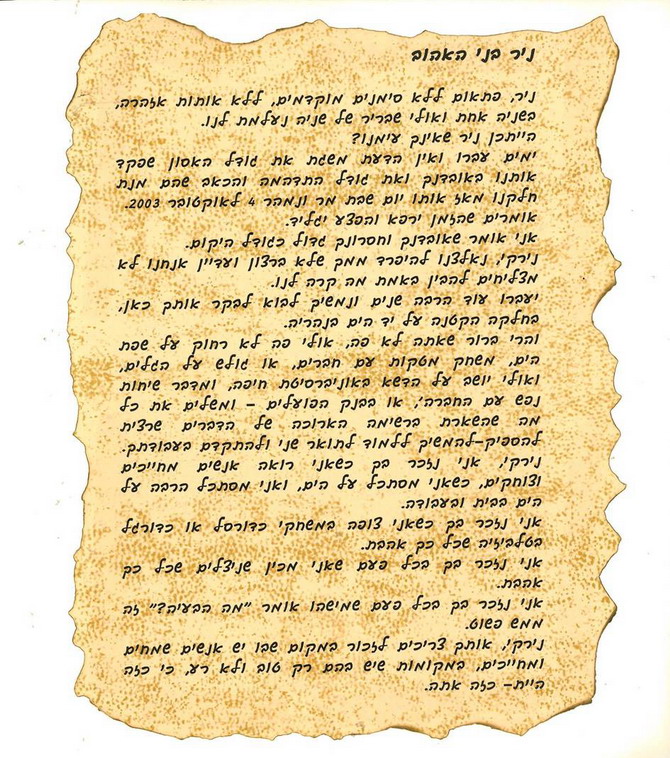 ניר בני האהוב
ניר, פתאום ללא סימנים מוקדמים, ללא אותות אזהרה,
בשניה אחת ואולי שבריר של שניה נעלמת לנו.
הייתכן ניר שאינך עימנו?
ימים עברו ואין הדעת משגת את גודל האסון שפקד
אותנו באובדנך ואת גודל התדהמה והכאב שהם מנת
חלקנו מאז אותו יום שבת מר ונמהר 4 לאוקטובר 2003.
אומרים שהזמן ירפא והפצע יגליד.
אני אומר שאובדנך וחסרונך גדול כגודל היקום.
נירקי, נאלצנו להיפרד ממך שלא ברצון ועדיין אנחנו לא
מצליחים להבין באמת מה קרה לנו.
יעברו עוד הרבה שנים ונמשיך לבוא לבקר אותך כאן,
בחלקה הקטנה על יד הים בנהריה.
והרי ברור שאתה לא פה, אולי פה לא רחוק על שפת
הים, משחק מטקות עם חברים, או גולש על הגלים,
ואולי יושב על הדשא באוניברסיטת חיפה, ומדבר שיחות
נפש עם החברה', או בבנק הפועלים – ומשלים את כל
מה שהשארת ברשימה הארוכה של הדברים שרצית
להספיק-להמשיך ללמוד לתואר שני ולהתקדם בעבודתך.
נירקי, אני נזכר בך כשאני רואה אנשים מחייכים
וצוחקים, כשאני מסתכל על הים, ואני מסתכל הרבה על
הים בבית ובעבודה.
אני נזכר בך כשאני צופה במשחקי כדורסל או כדורגל
בטלביזיה שכל כך אהבת.
אני נזכר בך בכל פעם שאני מכין שניצלים שכל כך
אהבת.
אני נזכר בך בכל פעם שמישהו אומר "מה הבעיה?" זה
ממש פשוט.
נירקי, אותך צריכים לזכור במקום שבו יש אנשים שמחים
ומחייכים, במקומות שיש בהם רק טוב ולא רע, כי כזה
היית- כזה אתה.